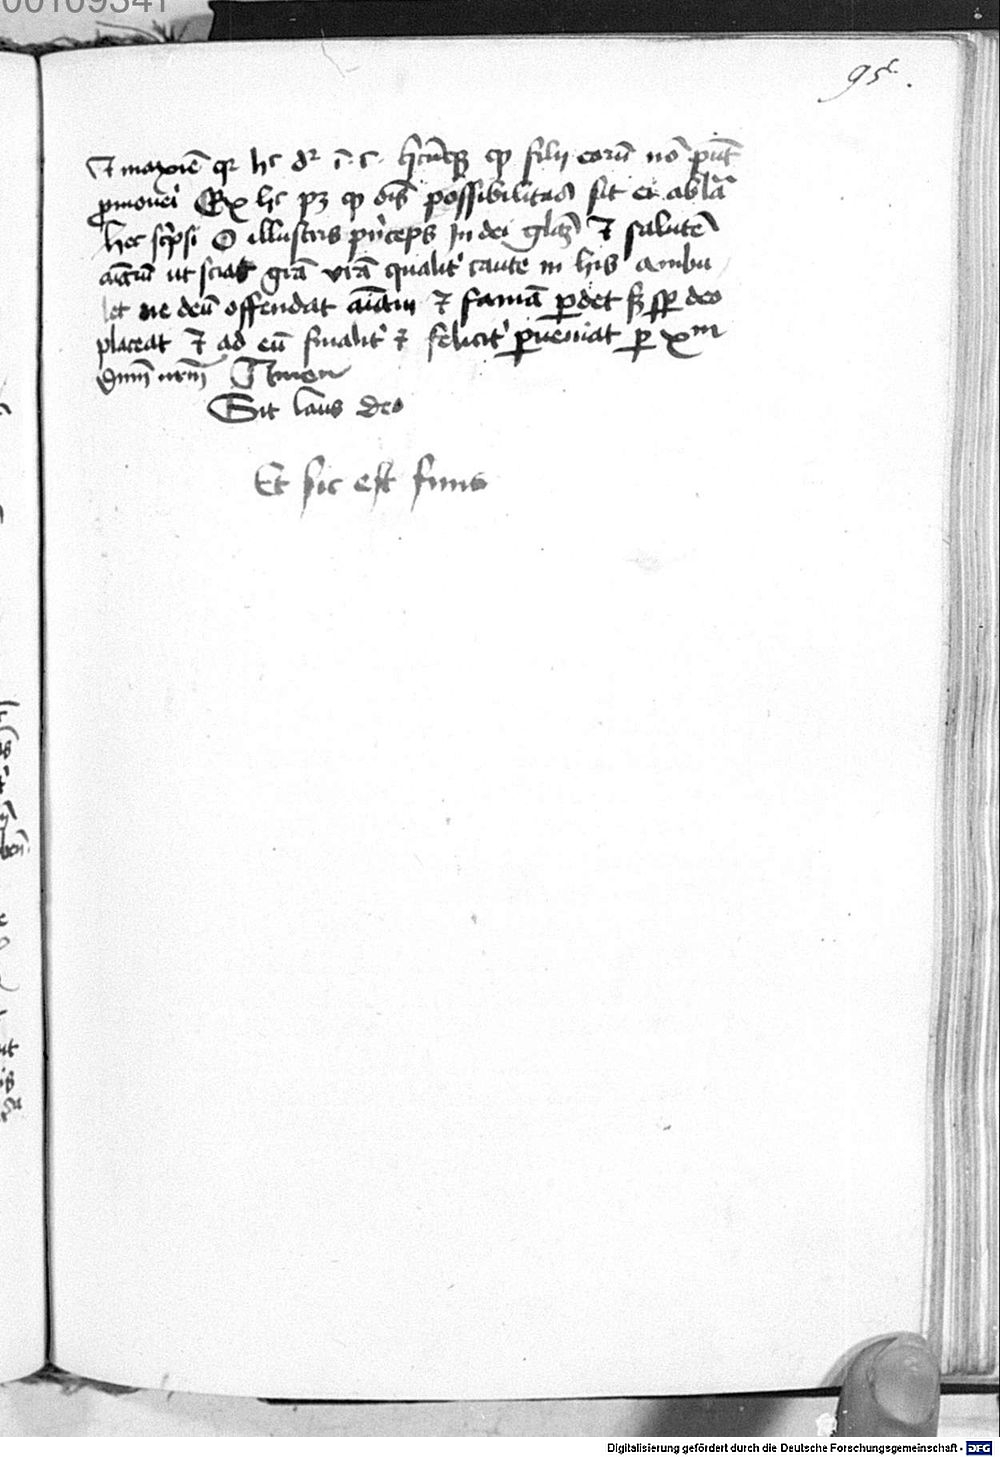 00109341
95
Et maxīe qr hc dr ī c. hītūcqꝫ ꝙ filij eorū nō pn̄t
ꝓmoueri Ex hc pꝫ ꝙ oīs possibilitas sit eis ablā
hec scͥpsi O illustris pͥnceps In dei glaꝫ Et salutē
aīaꝝ ut sciat grā vrā qualitͥ caute in his ambu
let ne deū offendat aīam Et famā ꝑdet sꝫ sꝑ deo
placeat Et ad eū finalitͥ Et felicitͥ ꝑueniat ꝑ xm̄
dnm̄ nrm̄ Amen
Sit laus deo
Et sic est finis
Digitalisierung gefördert durch die Deutsche Forschungsgemeinschaft - DFG